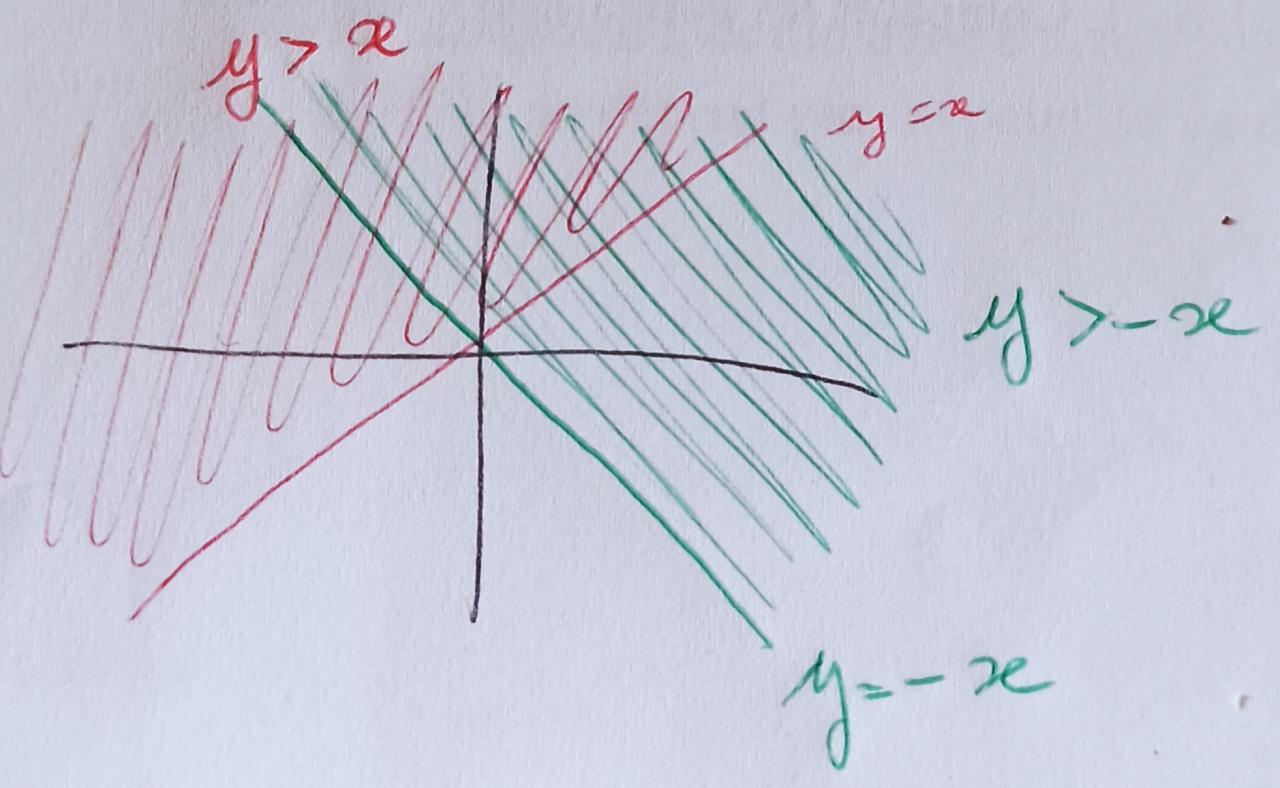 y > x
y = x
y > - x
y = - x